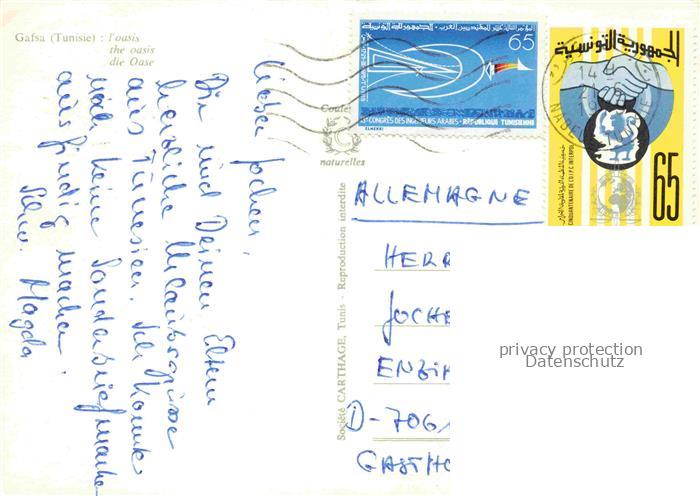 Gafsa (Tunisie) : l'oasis
the oasis
die Oase
Lieber Jochen,
Dir und Deinen Eltern
herzliche Urlaubsgrüsse
aus Tunesien. Ich konnte
noch keine Sonderbriefmarke
ausfindig machen
Magda
naturelles
Société CARTHAGE, Tunis - Reproduction interdite
65
CONGRÈS DES INGENIEURS ARABES - RÉPUBLIQUE TUNISIENNE
ELMEKKI
الجمهورية التونسية
14
CINQUANTENAIRE DE L'O.I.P.C. INTERPOL
65
ALLEMAGNE
HERR
JOCHE
ENZI
D-706
GASTHO
privacy protection
Datenschutz